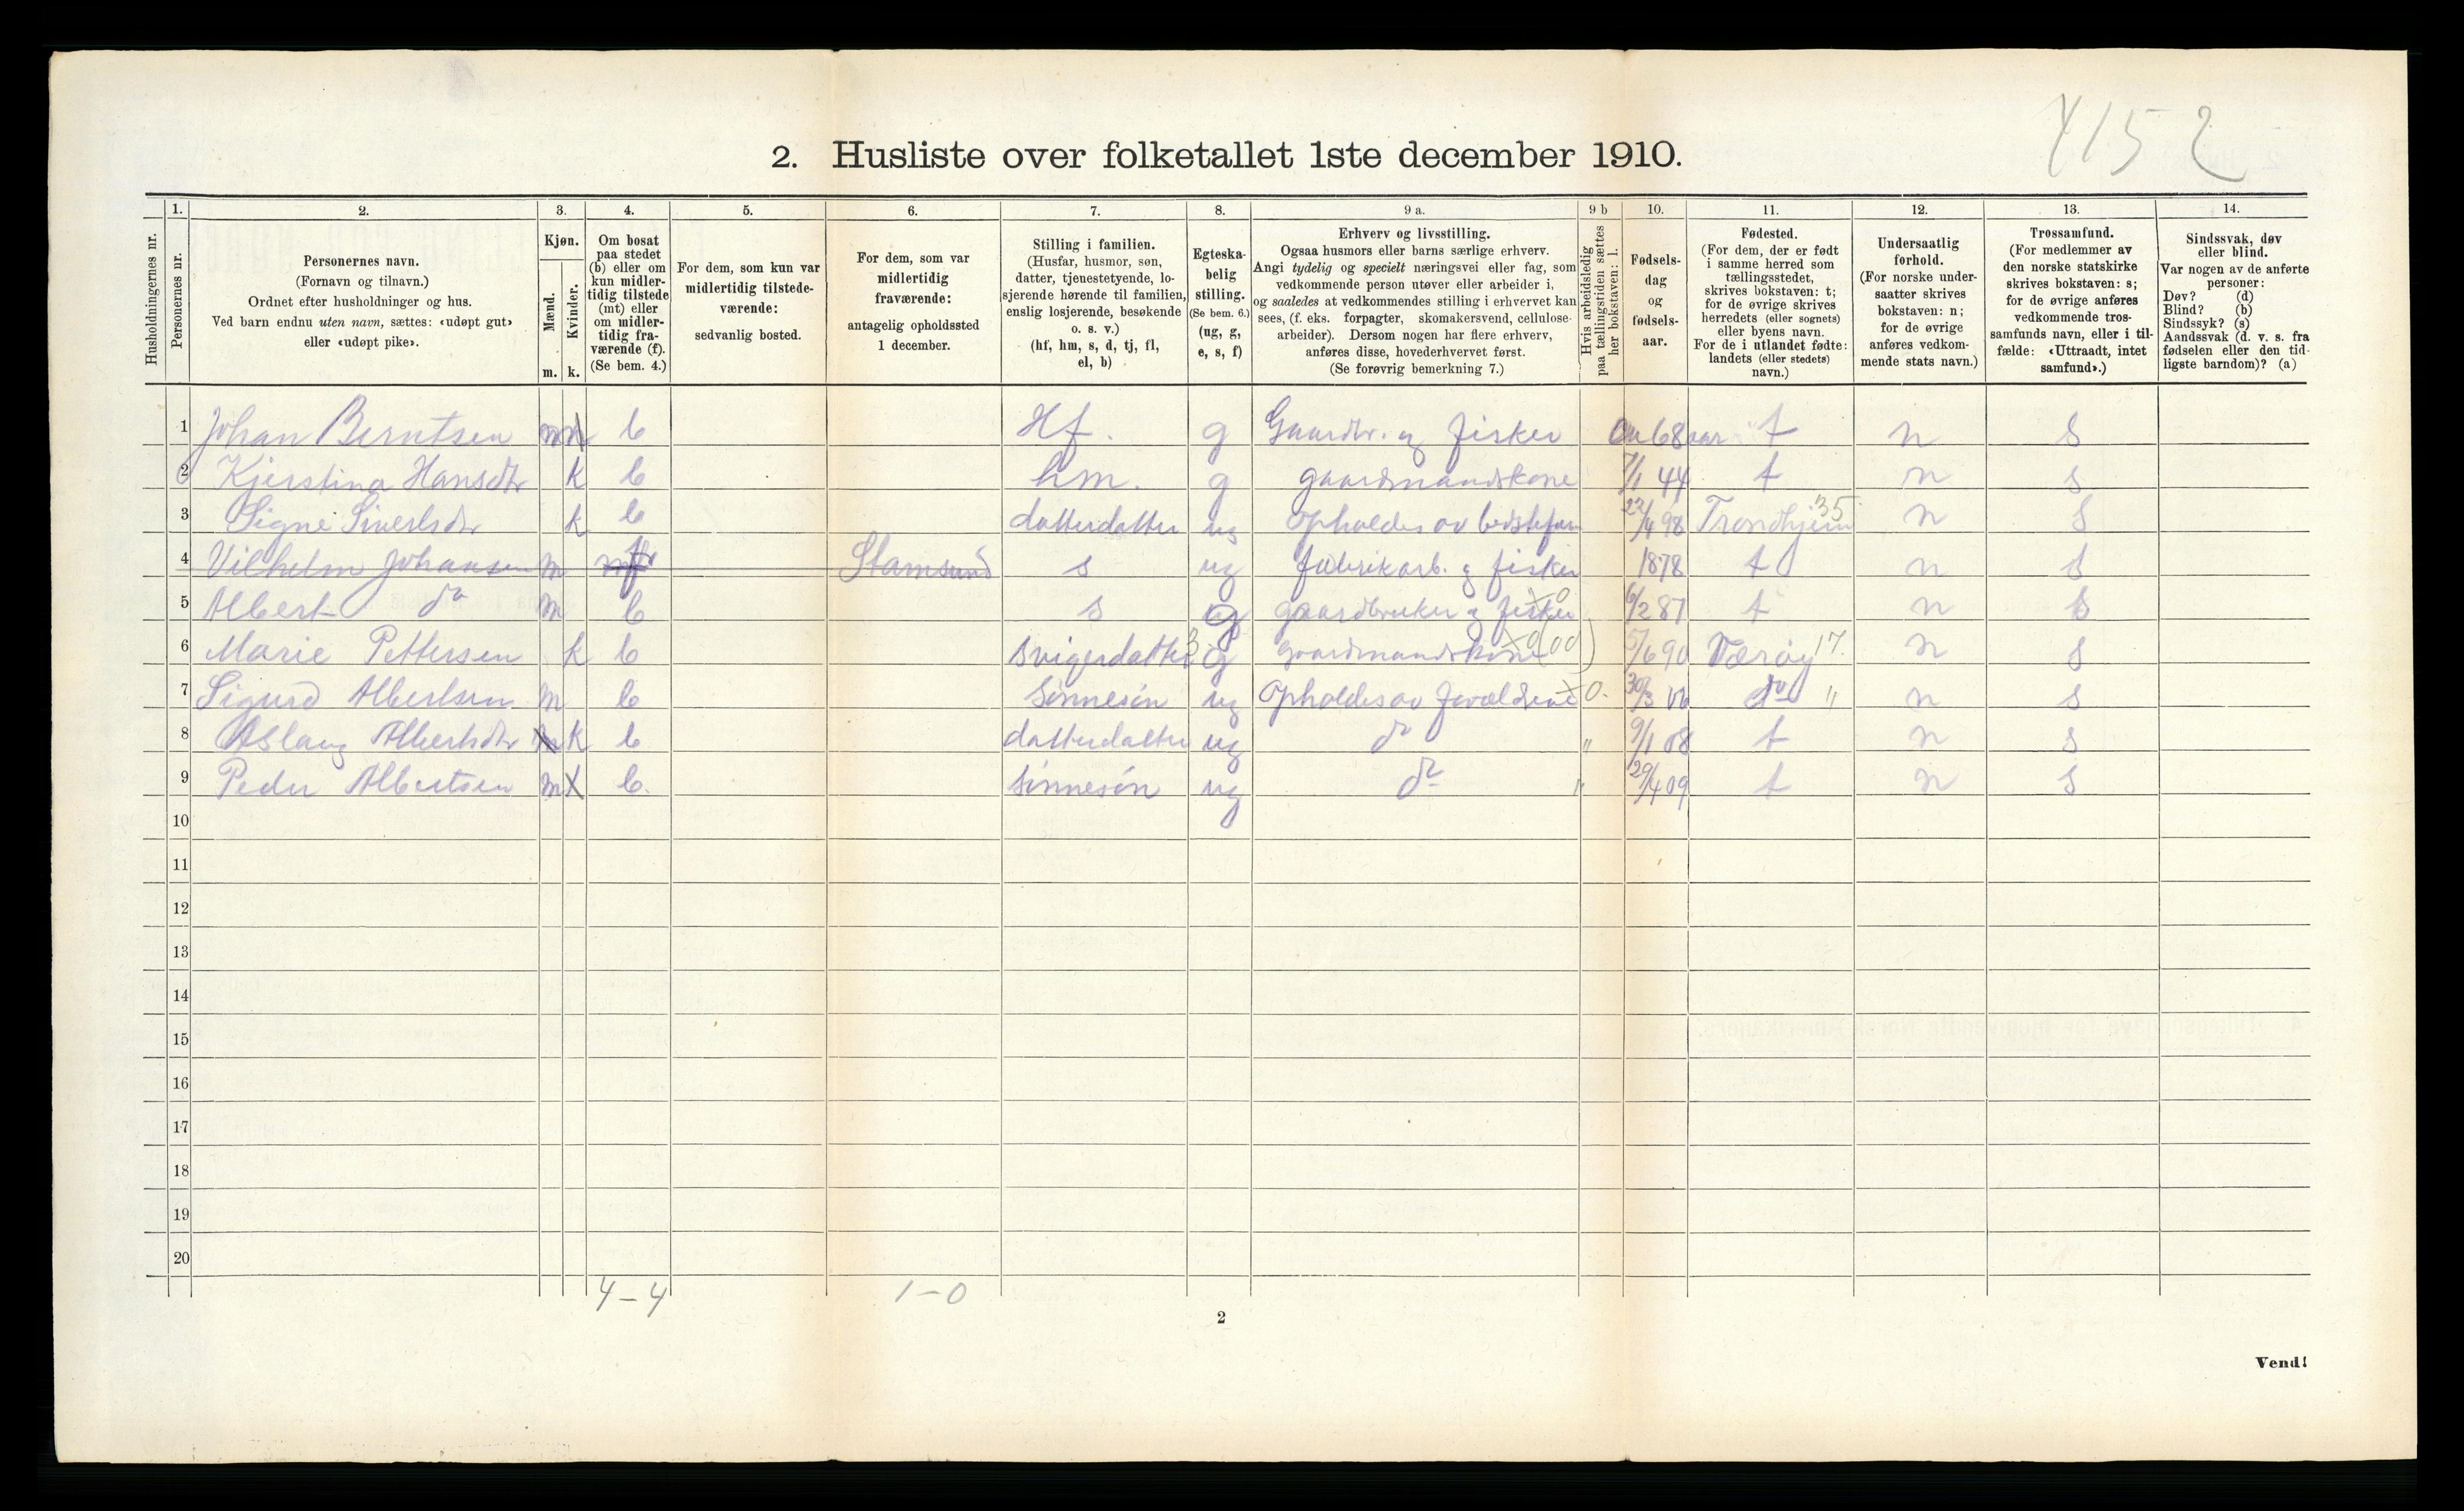 4152
2. Husliste over folketallet 1ste december 1910.
Husholdningernes nr.
1.
Personernes nr.
2.
Personernes navn.
(Fornavn og tilnavn.)
Ordnet efter husholdninger og hus.
Ved barn endnu uten navn, sættes: «udøpt gut»
eller «udøpt pike».
3.
Kjøn.
Mænd. Kvinder.
m. k.
4.
Om bosat
paa stedet
(b) eller om
kun midler-
tidig tilstede
(mt) eller
om midler-
tidig fra-
værende (f).
(Se bem. 4.)
5.
For dem, som kun var
midlertidig tilstede-
værende:
sedvanlig bosted.
6.
For dem, som var
midlertidig
fraværende:
antagelig opholdssted
1 december.
7.
Stilling i familien.
(Husfar, husmor, søn,
datter, tjenestetyende, lo-
sjerende hørende til familien,
enslig losjerende, besøkende
o. s. v.)
(hf, hm, s, d, tj, fl,
el, b)
8.
Egteska-
belig
stilling.
(Se bem. 6.)
(ug, g,
e, s, f)
9 a.
Erhverv og livsstilling.
Ogsaa husmors eller barns særlige erhverv.
Angi tydelig og specielt næringsvei eller fag, som
vedkommende person utøver eller arbeider i,
og saaledes at vedkommendes stilling i erhvervet kan
sees, (f. eks. forpagter, skomakersvend, cellulose-
arbeider). Dersom nogen har flere erhverv,
anføres disse, hovederhvervet først.
(Se forøvrig bemerkning 7.)
9 b
Hvis arbeidsledig
paa tællingstiden sættes
her bokstaven: l.
10.
Fødsels-
dag
og
fødsels-
aar.
11.
Fødested.
(For dem, der er født
i samme herred som
tællingsstedet,
skrives bokstaven: t;
for de øvrige skrives
herredets (eller sognets)
eller byens navn.
For de i utlandet fødte:
landets (eller stedets)
navn.)
12.
Undersaatlig
forhold.
(For norske under-
saatter skrives
bokstaven: n;
for de øvrige
anføres vedkom-
mende stats navn.)
13.
Trossamfund.
(For medlemmer av
den norske statskirke
skrives bokstaven: s;
for de øvrige anføres
vedkommende tros-
samfunds navn, eller i til-
fælde: «Uttraadt, intet
samfund».)
14.
Sindssvak, døv
eller blind.
Var nogen av de anførte
personer:
Døv? (d)
Blind? (b)
Sindssyk? (s)
Aandssvak (d. v. s. fra
fødselen eller den tid-
ligste barndom)? (a)
1 Johan Berntsen m b Hf. g Gaardbr. og fisker 68 aar t n s
2 Kjerstina Hansdtr k b hm. g gaardmandskone 7/1 44 t n s
3 Signe Sivertsdtr k b datterdatter ug opholdes av bedstefar 22/4 98 Trondhjem 35 n s
4 Vilhelm Johansen m f Stamsund s ug fabrikarb. og fisker 1878 t n s
5 Albert do m b s g gaardbruker og fisker 6/2 87 t n s
6 Marie Pettersen k b svigerdatter g gaardmandskone 5/6 90 Værøy 17. n s
7 Sigurd Albertsen m b sønnesøn ug Opholdes av forældrene 30/3 do " n s
8 Aslaug Albertsdtr k b datterdatter ug do " 9/1 08 t n s
9 Peder Albertsen m b. sønnesøn ug do " 29/4 09 t n s
10
11
12
13
14
15
16
17
18
19
20
4 – 4 1 – 0
2
Vend!